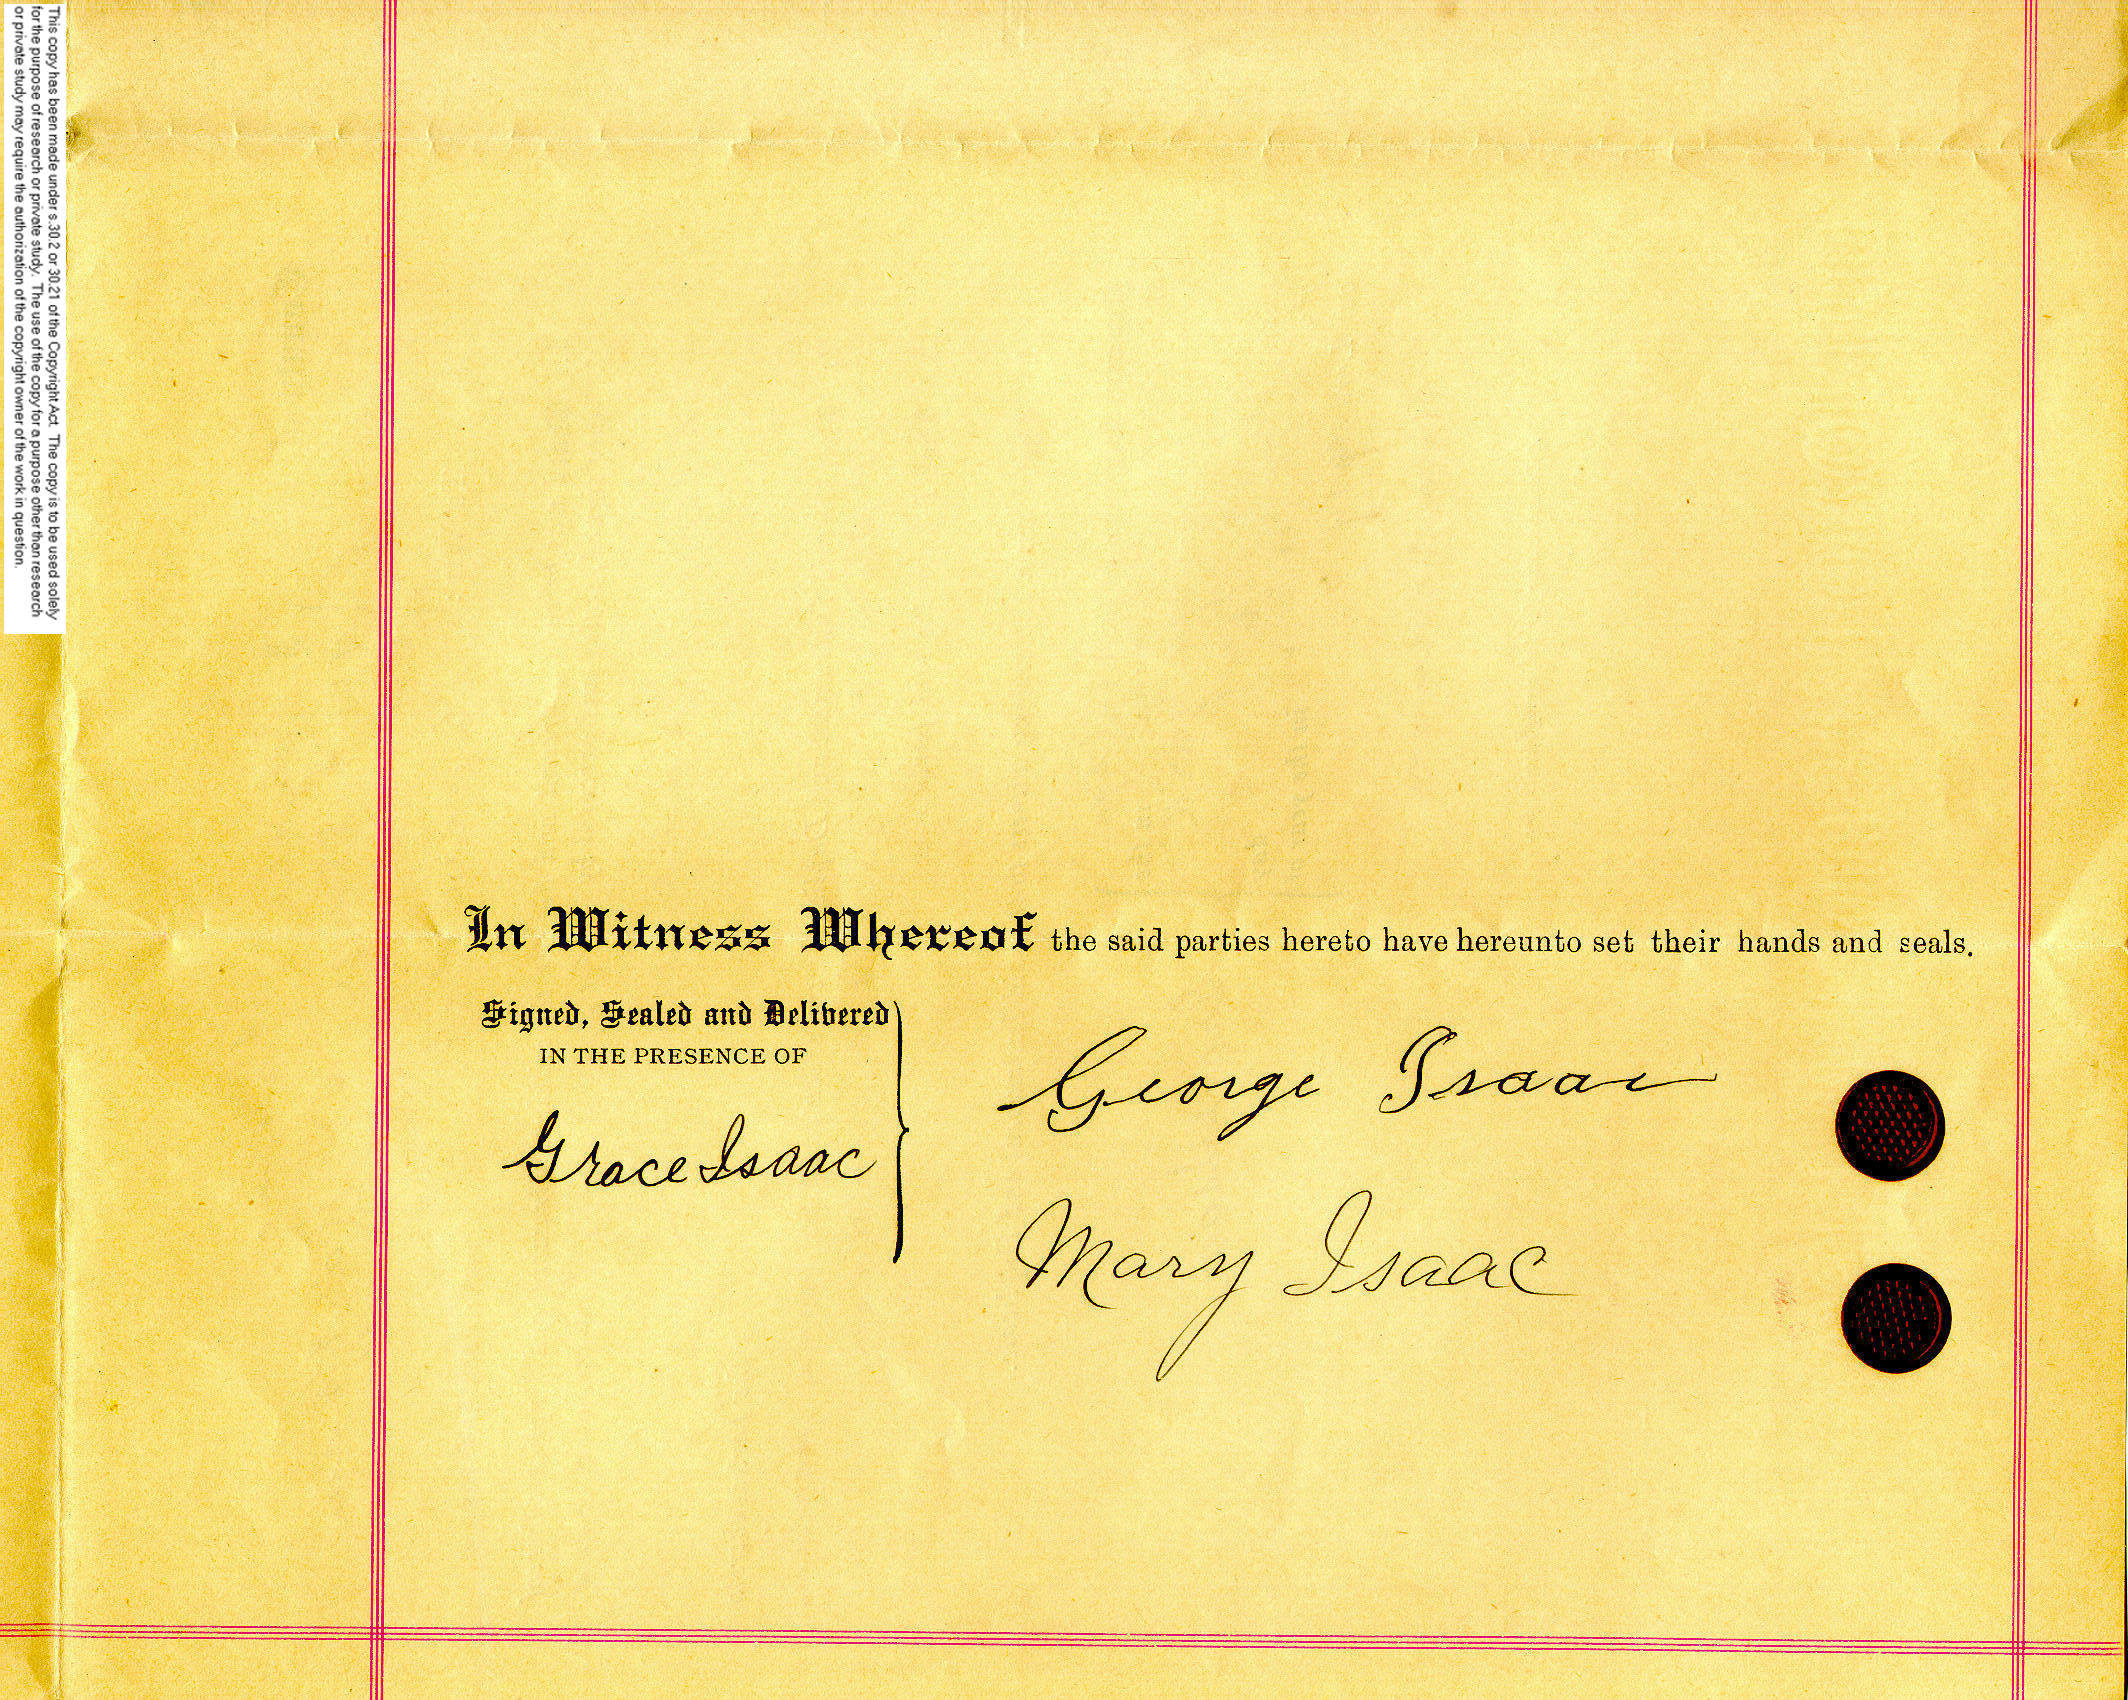 This copy has been made under s.30.2 or 30.21 of the Copyright Act. The copy is to be used solely
for the purpose of research or private study. The use of the copy for a purpose other than research
or private study may require the authorization of the copyright owner of the work in question.
In Witness Whereof the said parties hereto have hereunto set their hands and seals.
Signed, Sealed and Delivered
IN THE PRESENCE OF
Grace Isaac
George Isaac
Mary Isaac